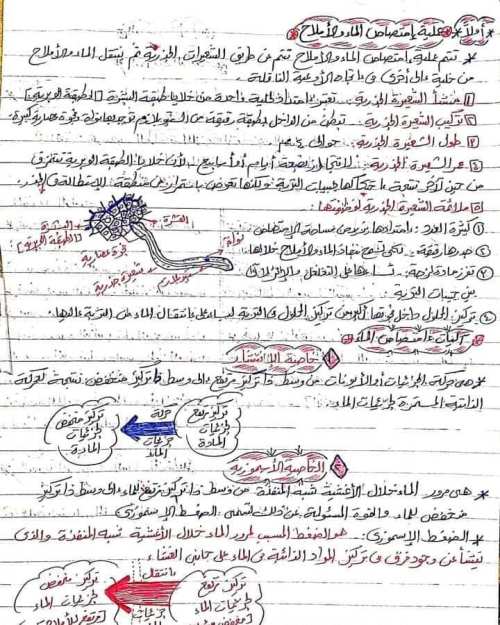 أولاً عملية امتصاص الماء والأملاح
* تتم عملية امتصاص الماء والأملاح تتم عن طريق الشعيرات الجذرية ثم ينتقل الماء والأملاح
من خلية إلى أخرى فى باقى الأوعية الناقلة.
١ منشأ الشعيرة الجذرية: تعتبر امتداد لخلية واحدة من خلايا طبقة البشرة [الطبقة الوبرية]
٢ تركيب الشعيرة الجذرية: تبطن من الداخل بطبقة رقيقة من السيتوبلازم توجد بها نواة وفجوة عصارية كبيرة.
٣ طول الشعيرة الجذرية: حوالى ٤ مم
٤ عمر الشعيرة الجذرية: لا تتجاوز بضعة أيام أو أسابيع لأن خلايا الطبقة الوبرية تتمزق
من حين لآخر نتيجة احتكاكها بحبيبات التربة ولكنها تعوض باستمرار من منطقة الإستطالة فى الجذر.
٥ ملائمة الشعيرة الجذرية لوظيفتها:
١ كثيرة العدد: امتدادها يزيد من مساحة الامتصاص
٢ جدرها رقيقة: لكى تسمح بنفاذ الماء والأملاح خلالها
٣ تفرز مادة لزجة: تساعدها على التغلغل والإنزلاق
بين حبيبات التربة
٤ تركيز المحلول داخل فجوتها أكبر من تركيز المحلول فى التربة ليساعد على انتقال الماء من التربة إليها.
البشرة
[الطبقة الوبرية]
القشرة
نواة
فجوة عصارية
شعيرة جذرية
سيتوبلازم
آليات امتصاص الماء
١ خاصية الانتشار
* هى حركة الجزيئات أو الأيونات من وسط ذا تركيز مرتفع إلى وسط ذا تركيز منخفض نتيجة للحركة
الذاتية المستمرة لجزيئات الماء.
تركيز مرتفع لجزيئات المادة
حركة جزيئات الماء
تركيز منخفض لجزيئات المادة
٢ الخاصية الأسموزية
* هى مرور الماء خلال الأغشية شبه المنفذة من وسط ذا تركيز مرتفع للماء إلى وسط ذا تركيز
منخفض للماء والقوة المسئولة عن ذلك تسمى الضغط الإسموزى
* الضغط الإسموزى: هو الضغط المسبب لمرور الماء خلال الأغشية شبه المنفذة والذى
ينشأ عن وجود فرق فى تركيز المواد الذائبة فى الماء على جانبى الغشاء
تركيز مرتفع لجزيئات الماء
انتقال جزيئات الماء
تركيز منخفض لجزيئات الماء